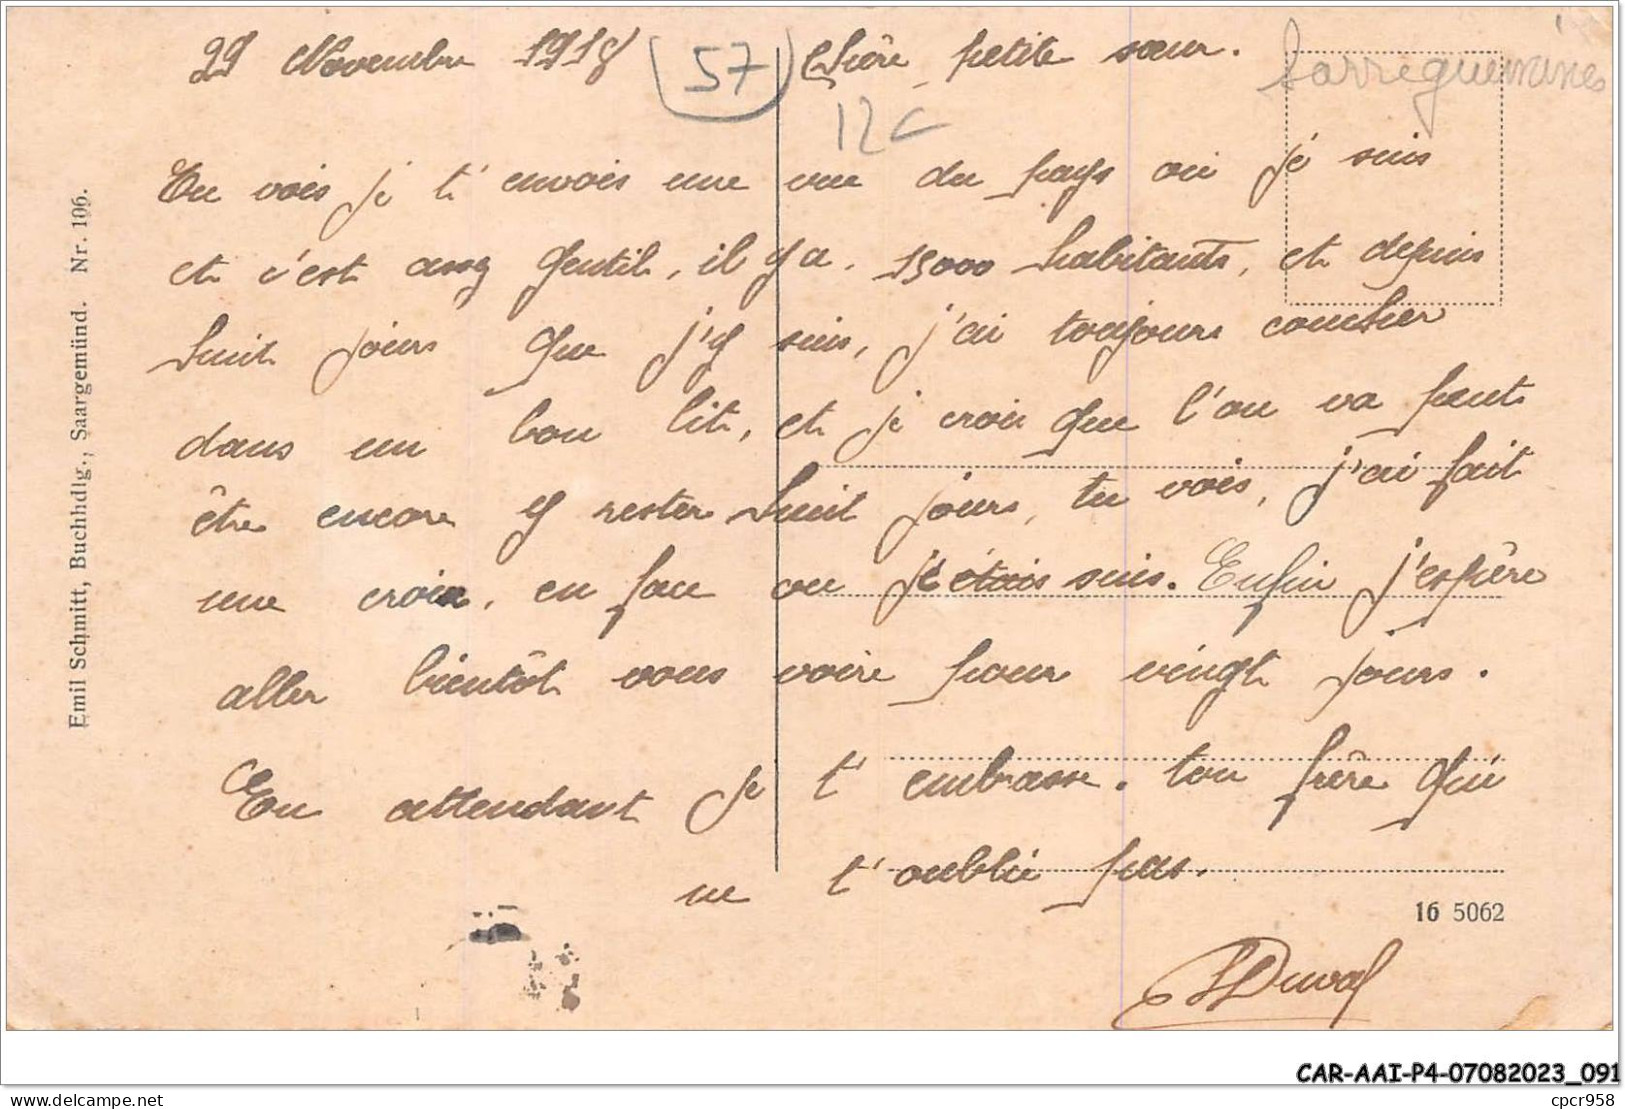 29 Novembre 1918 (57) Chère petite sœur.
Sarreguemines
12€
Tu vois je t'envois une vue du pays ou je suis
et c'est assez gentil, il y a 15000 habitants, et depuis
huit jours que j'y suis, j'ai toujours coucher
dans un bon lit, et je croir que l'on va peut
être encore y rester huit jours, tu vois, j'ai fait
une croix, en face ou j'étais suis. Enfin j'espère
aller bientôt vous voire pour vingt jours.
En attendant je t'embrasse. ton frère qui
ne t'oublie pas.
Duval
Emil Schmitt, Buchhdlg., Saargemünd. Nr. 106.
16 5062
CAR-AAI-P4-07082023_091
delcampe.net
cpcr958